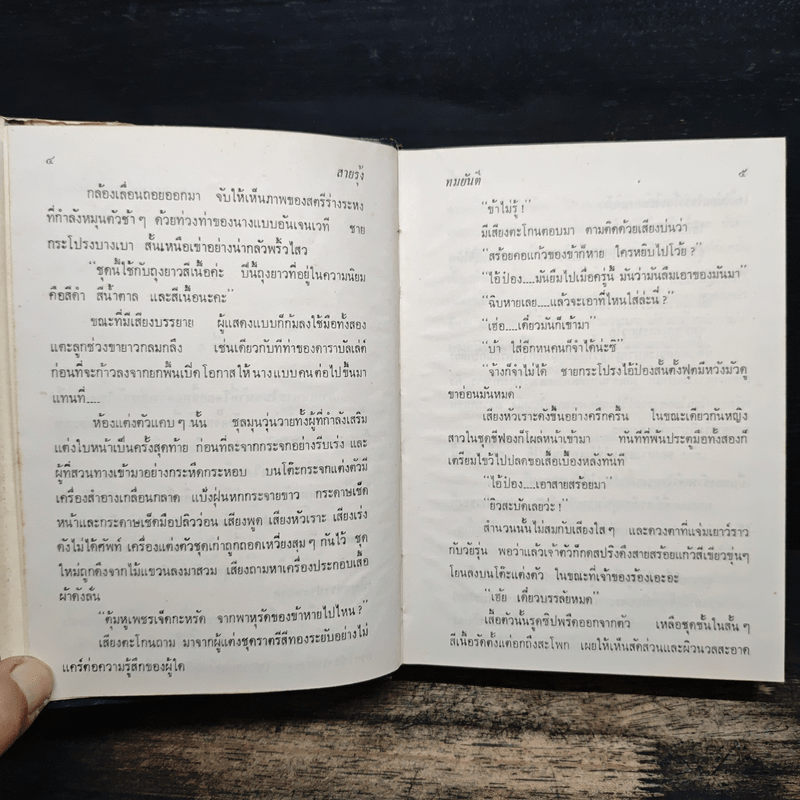 ๔
สายรุ้ง
กล้องเลื่อนถอยออกมา จับให้เห็นภาพของสตรีร่างระหง
ที่กำลังหมุนตัวช้า ๆ ด้วยท่วงท่าของนางแบบอันเจนเวที ชาย
กระโปรงบางเบา สั้นเหนือเข่าอย่างน่ากลัวพริ้วไสว
“ชุดนี้ใช้กับถุงยาวสีเนื้อค่ะ ปีนี้ถุงยาวที่อยู่ในความนิยม
คือสีดำ สีน้ำตาล และสีเนื้อนะคะ”
ขณะที่มีเสียงบรรยาย ผู้แสดงแบบก็ก้มลงใช้มือทั้งสอง
แตะลูกช่วงขายาวกลมกลึง เช่นเดียวกับทีท่าของดาราบัลเล่ต์
ก่อนที่จะก้าวลงจากยกพื้นเปิดโอกาสให้นางแบบคนต่อไปขึ้นมา
แทนที่....
ห้องแต่งตัวแคบ ๆ นั้น ชุลมุนวุ่นวายทั้งผู้ที่กำลังเสริม
แต่งใบหน้าเป็นครั้งสุดท้าย ก่อนที่ละจากกระจกอย่างรีบเร่ง และ
ผู้ที่สวนทางเข้ามาอย่างกระหืดกระหอบ บนโต๊ะกระจกแต่งตัวมี
เครื่องสำอางเกลื่อนกลาด แป้งฝุ่นหกกระจายขาว กระดาษเช็ด
หน้าและกระดาษเช็ดมือปลิวว่อน เสียงพูด เสียงหัวเราะ เสียงเร่ง
ดังไม่ได้ศัพท์ เครื่องแต่งตัวชุดเก่าถูกถอดเหวี่ยงสุม ๆ กันไว้ ชุด
ใหม่ถูกดึงจากไม้แขวนลงมาสวม เสียงถามหาเครื่องประกอบเสื้อ
ผ้าดังลั่น
“ตุ้มหูเพชรเจ็ดกะหรัด จากพาหุรัดของข้าหายไปไหน ?”
เสียงตะโกนถาม มาจากผู้แต่งชุดราตรีสีทองระยับอย่างไม่
แคร์ต่อความรู้สึกของผู้ใด
ทมยันตี
๕
“ข้าไม่รู้ !”
มีเสียงตะโกนตอบมา ตามติดด้วยเสียงบ่นว่า
“สร้อยคอแก้วของข้าก็หาย ใครหยิบไปโว้ย ?”
“ไอ้ป๋อง....มันยืมไปเมื่อครู่นี้ มันว่ามันลืมเอาของมันมา”
“ฉิบหายเลย....แล้วจะเอาที่ไหนใส่ล่ะนี่ ?”
“เฮ่อ....เดี๋ยวมันก็เข้ามา”
“บ้า ใส่อีกหนคนก็จำได้น่ะซิ”
“จ้างก็จำไม่ได้ ชายกระโปรงไอ้ป๋องสั้นตั้งฟุตมีหวังมัวดู
ขาอ่อนมันหมด”
เสียงหัวเราะดังขึ้นอย่างครึกครื้น ในขณะเดียวกันหญิง
สาวในชุดชีฟองก็โผล่หน้าเข้ามา ทันทีที่พ้นประตูมือทั้งสองก็
เตรียมไขว้ไปปลดขอเสื้อเบื้องหลังทันที
“ไอ้ป๋อง....เอาสายสร้อยมา”
“ยิวสะบัดเลยว่ะ !”
สำนวนนั้นไม่สมกับเสียงใส ๆ และดวงตาที่แจ่มแวววาว
กับวัยรุ่น พอว่าแล้วเจ้าตัวก็กดสปริงดึงสายสร้อยแก้วสีเขียวขุ่นๆ
โยนลงบนโต๊ะแต่งตัว ในขณะที่เจ้าของร้องเอะอะ
“เฮ้ย เดี๋ยวบรรลัยหมด”
เสื้อตัวนั้นรูดซิปพรืดออกจากตัว เหลือชุดชั้นในสั้น ๆ
สีเนื้อรัดตั้งแต่อกถึงสะโพก เผยให้เห็นสัดส่วนและผิวนวลสะอาด